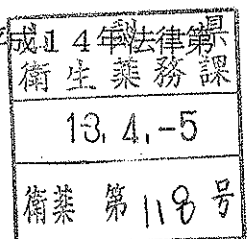 平成14年法律第
衛生薬務課
13.4.-5
衛薬 第118号